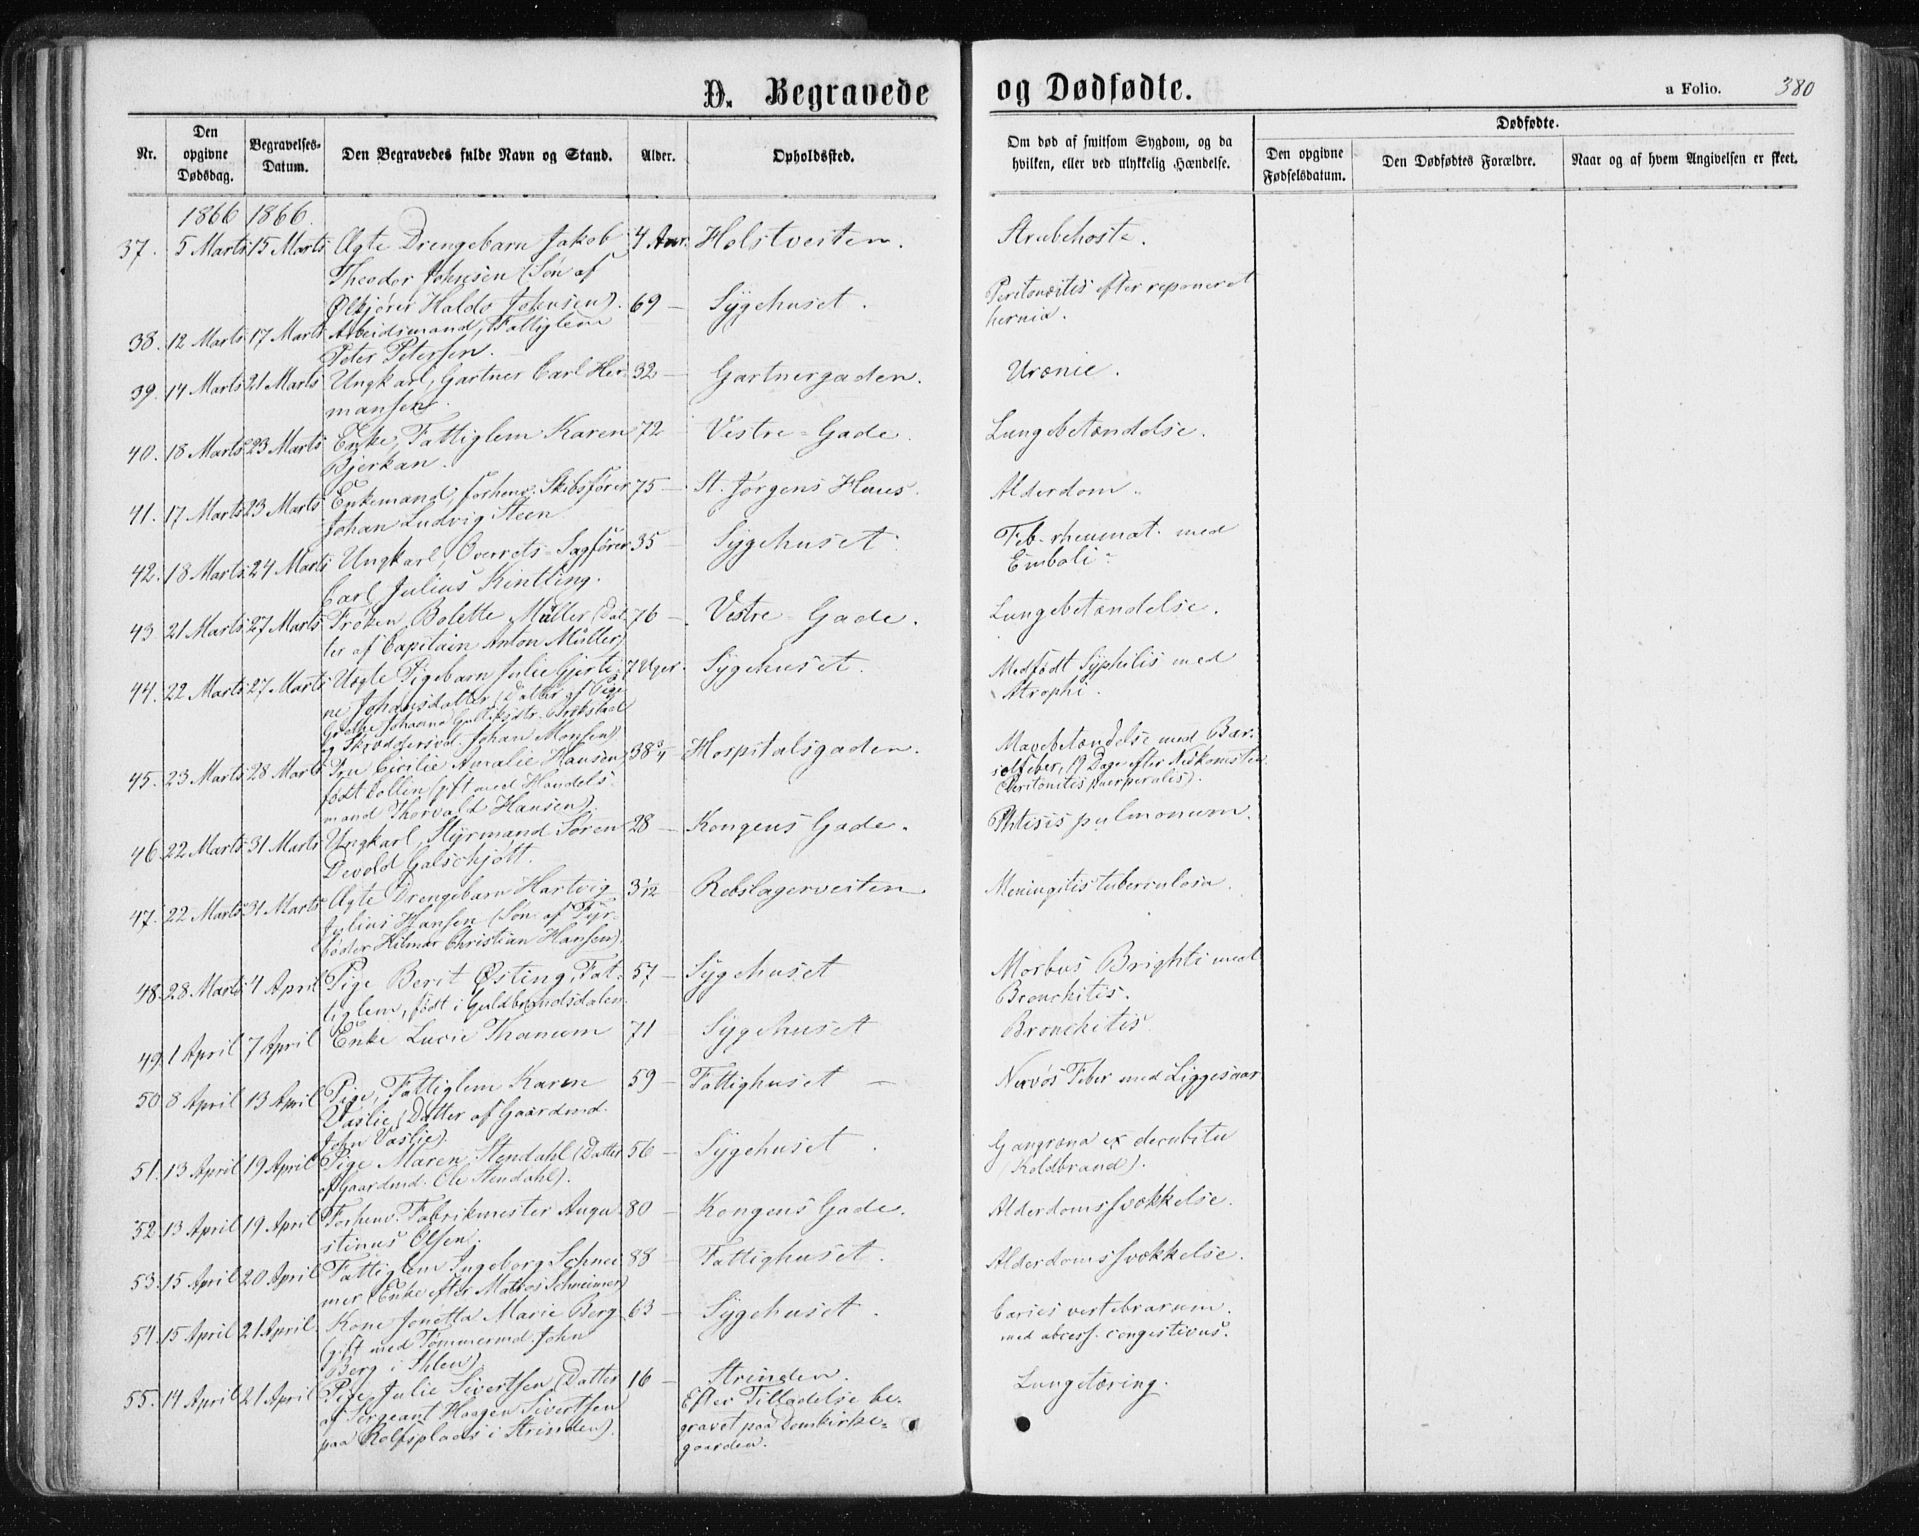 D. Begravede og Dødfødte.
a Folio. 380
Nr.
Den opgivne Dødsdag.
Begravelses-Datum.
Den Begravedes fulde Navn og Stand.
Alder.
Opholdssted.
Om død af smitsom Sygdom, og da hvilken, eller ved ulykkelig Hændelse.
Dødfødte.
Den opgivne Fødselsdatum.
Den Dødfødtes Forældre.
Naar og af hvem Angivelsen er skeet.
1866 1866.
37. 5 Marts 15 Marts Ægte Drengebarn Jakob 4 Aar. Holstveiten. Strubehoste.
Theodor Johnsen (Søn af
Ølkjører Johnsen).
38. 12 Marts 17 Marts Arbeidsmand, Fattiglem 69 — Sygehuset. Peritonæites efter reponeret
Peter Petersen. hernia.
39. 14 Marts 21 Marts Ungkarl, Gartner Carl Her- 32 — Gartnergaden. Urænie.
mansen.
40. 18 Marts 23 Marts Enke, Fattiglem Karen 72 Vestre-Gade. Lungebetændelse.
Bjerkan.
41. 17 Marts 23 Marts Enkemand, forhenv. Skibsfører 75 — St. Jørgens Huus. Alderdom.
Johan Ludvig Steen
42. 18 Marts 24 Marts Ungkarl, Overrets-Sagfører 35 — Sygehuset Feb. rheumat. med
Carl Julius Kintling. Emboli.
43. 21 Marts 27 Marts Frøken Bolette Müller (Dat- 76 — Vestre Gade. Lungebetændelse.
ter af Capitain Anton Müller)
44. 22 Marts 27 Marts Uægte Pigebarn Julie Gjerti- 7 Uger. Sygehuset. Medfødt Syphilis med
ne Johansdatter (Datter af Pige Atrophi.
Johanna
Johan Monsen)
45. 23 Marts 28 Marts Fru Cicilie Amalie Hansen, 38¾ Hospitalsgaden. Mavebetændelse med Bar-
født Collin (gift med Handels- selfeber, 19 Dage efter Nedkomsten
mand Thorvald Hansen). (Peritonitis puerperalis).
46. 22 Marts 31 Marts Ungkarl, Styrmand Søren 28 — Kongens Gade. Phtisis pulmonum.
Devold Galschjøtt.
47. 22 Marts 31 Marts Ægte Drengebarn Hartvig 3/12 — Rebslagerveiten. Meningitis tuberculosa.
Julius Hansen (Søn af Fyr-
bøder Hilmar Christian Hansen).
48. 28 Marts 4 April Pige Berit Østing, Fat- 57 — Sygehuset Morbus Brighti med
tiglem, født i Guldbrandsdalen. Bronchitis.
49. 1 April 7 April Enke Lucie Thanum 71 — Sygehuset Bronchitis
50. 8 April 13 April Pige, Fattiglem Karen 59 — Fattighuset — Nervøs Feber med Liggesaar
Vaslie (Datter af Gaardmd.
John Vaslie).
51. 13 April 19 April Pige Maren Stendahl (Datter 56 — Sygehuset. Gangræna ex decubitu
af Gaardmd. Ole Stendahl). (Koldbrand).
52. 13 April 19 April Forhenv. Fabrikmester Augu- 80 — Kongens Gade. Alderdomssvækkelse.
stinus Olsen.
53. 15 April 20 April Fattiglem Ingeborg Schnei- 88 — Fattighuset. Alderdomssvækkelse.
mer (Enke efter Matros Schneimer)
54. 15 April 21 April. Kone Jonetta Marie Berg 63 — Sygehuset. Caries vertebrarum
(gift med Tømmermd. John med abcess. congestivus.
Berg i Ihlen).
55. 14 April 21 April Pige Julie Sivertsen (Datter 16 — Strinden. Lungetæring.
af Sergeant Haagen Sivertsen Efter Tilladelse be-
paa Rolfsplads i Strinden). gravet paa Domkirke-
gaarden.